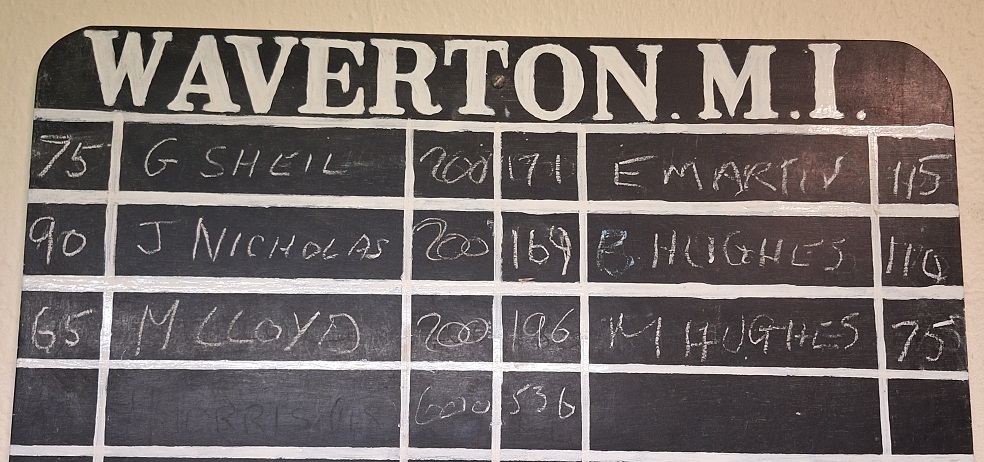 WAVERTON.M.I.
75 G SHEIL 200 171 E MARTIN 115
90 J NICHOLAS 200 169 B HUGHES 110
65 M LLOYD 200 196 M HUGHES 75
600 536